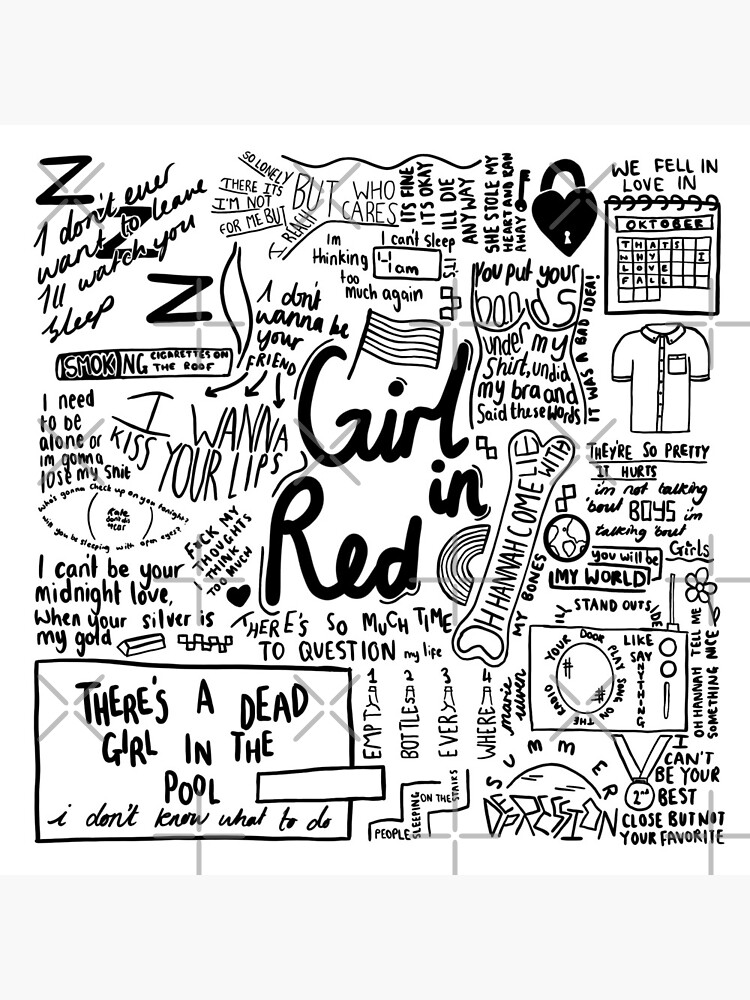 Z
Z
Z
I don't ever
want to leave
I'll watch you
sleep
SO LONELY
THERE ITS
I'M NOT
FOR ME BUT
I REACH
BUT WHO
CARES
ITS FINE
ITS OKAY
ILL DIE
ANYWAY
SHE STOLE MY
HEART AND RAN
AWAY
WE FELL IN
LOVE IN
OKTOBER
THATS
WHY I
LOVE
FALL
Im
thinking
too
much again
I can't sleep
4am
IT'S
I don't
wanna be
your
FRIEND
SMOKING CIGARETTES ON
THE ROOF
You put your
hands
under my
shirt, undid
my bra and
said these words
IT WAS A BAD IDEA!
Girl
in
Red
I need
to be
alone or
im gonna
lose my shit
I WANNA
KISS YOUR LIPS
who's gonna check up on you tonight?
will you be sleeping with open eyes?
FUCK MY
THOUGHTS
I THINK
TOO MUCH
OH HANNAH COME LIE
WITH
MY BONES
THEY'RE SO PRETTY
IT HURTS
i'm not talking
'bout BOYS i'm
talking 'bout
Girls
you will be
MY WORLD
I can't be your
midnight love,
when your silver is
my gold
THERE'S SO MUCH TIME
TO QUESTION my life
STAND OUTSIDE
YOUR DOOR PLAY SONG ON THE RADIO
LIKE
SAY
ANYTHING
OH HANNAH TELL ME
SOMETHING NICE
THERE'S A DEAD
GIRL IN THE
POOL
i don't know what to do
1 2 3 4
EMPTY
BOTTLES
EVERY
WHERE
PEOPLE
SLEEPING
ON THE
STAIRS
SUMMER
DEPRESSION
2nd
I
CAN'T
BE YOUR
BEST
CLOSE BUT NOT
YOUR FAVORITE